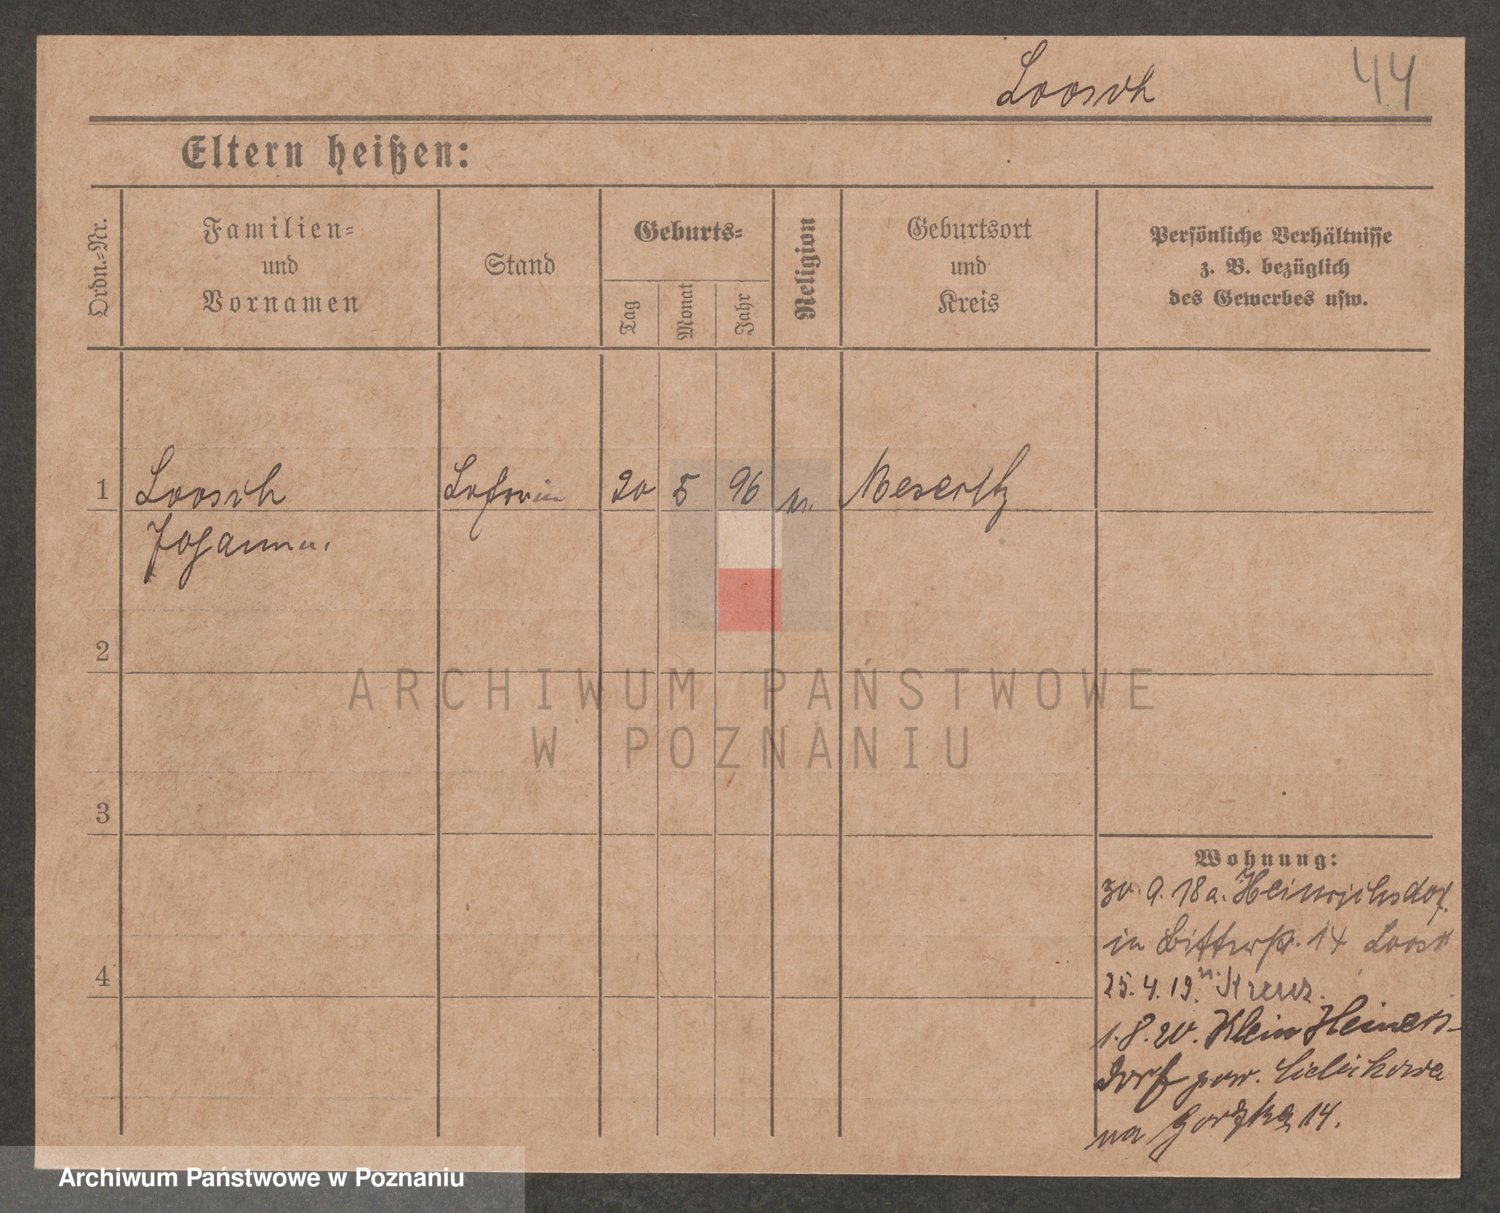 Loosch
44
Eltern heißen:
Ordn.-Nr.
Familien-
und
Vornamen
Stand
Geburts-
Tag
Monat
Jahr
Religion
Geburtsort
und
Kreis
Persönliche Verhältnisse
z. B. bezüglich
des Gewerbes usw.
1
Loosch
Johanna.
20
5
96
Meseritz
2
ARCHIWUM PAŃSTWOWE
W POZNANIU
3
Wohnung:
30. 9. 18 a. Heinrichsdorf
in Bitterstr. 14 Loosch
4
25. 4. 19. n. Kreuz.
1. 8. 20. Klein Heiners-
dorf pow.
na 14.
Archiwum Państwowe w Poznaniu